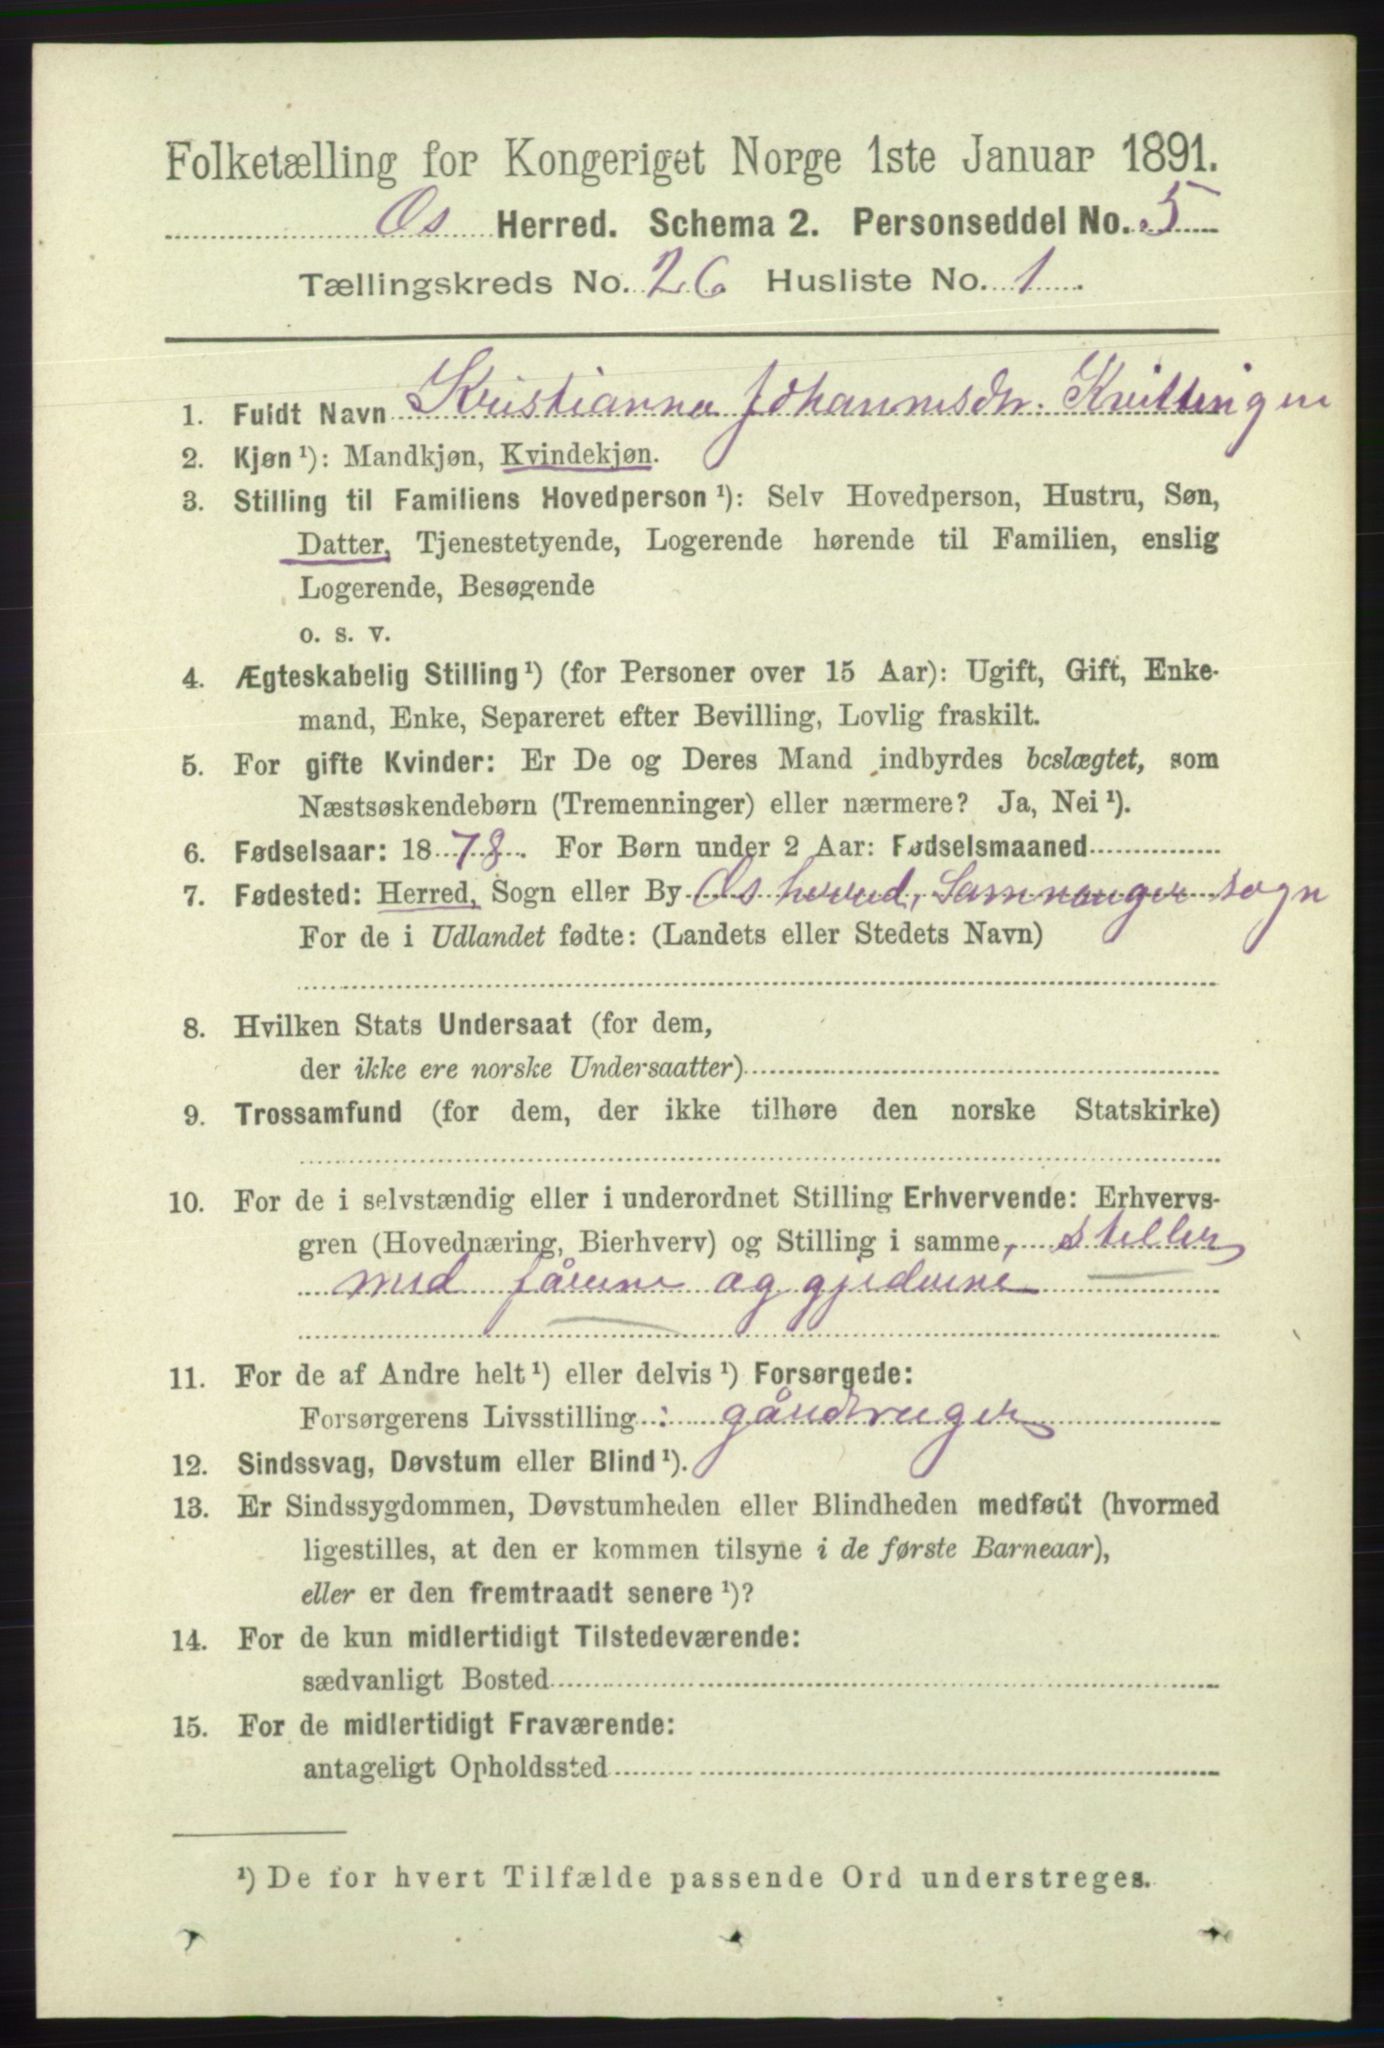 Folketælling for Kongeriget Norge 1ste Januar 1891.
Os Herred. Schema 2. Personseddel No. 5
Tællingskreds No. 26 Husliste No. 1.
1. Fuldt Navn Kristianna Johannesdr. Kvittingen
2. Kjøn ¹): Mandkjøn, Kvindekjøn.
3. Stilling til Familiens Hovedperson ¹): Selv Hovedperson, Hustru, Søn,
Datter, Tjenestetyende, Logerende hørende til Familien, enslig
Logerende, Besøgende
o. s. v.
4. Ægteskabelig Stilling ¹) (for Personer over 15 Aar): Ugift, Gift, Enke-
mand, Enke, Separeret efter Bevilling, Lovlig fraskilt.
5. For gifte Kvinder: Er De og Deres Mand indbyrdes beslægtet, som
Næstsøskendebørn (Tremenninger) eller nærmere? Ja, Nei ¹).
6. Fødselsaar: 1878. For Børn under 2 Aar: Fødselsmaaned
7. Fødested: Herred, Sogn eller By Os herred, Samnanger sogn
For de i Udlandet fødte: (Landets eller Stedets Navn)
8. Hvilken Stats Undersaat (for dem,
der ikke ere norske Undersaatter)
9. Trossamfund (for dem, der ikke tilhøre den norske Statskirke)
10. For de i selvstændig eller i underordnet Stilling Erhvervende: Erhvervs-
gren (Hovednæring, Bierhverv) og Stilling i samme, steller
med fårene og gjederne
11. For de af Andre helt ¹) eller delvis ¹) Forsørgede:
Forsørgerens Livsstilling: gårdbruger
12. Sindssvag, Døvstum eller Blind ¹).
13. Er Sindssygdommen, Døvstumheden eller Blindheden medfødt (hvormed
ligestilles, at den er kommen tilsyne i de første Barneaar),
eller er den fremtraadt senere ¹)?
14. For de kun midlertidigt Tilstedeværende:
sædvanligt Bosted
15. For de midlertidigt Fraværende:
antageligt Opholdssted
¹) De for hvert Tilfælde passende Ord understreges.